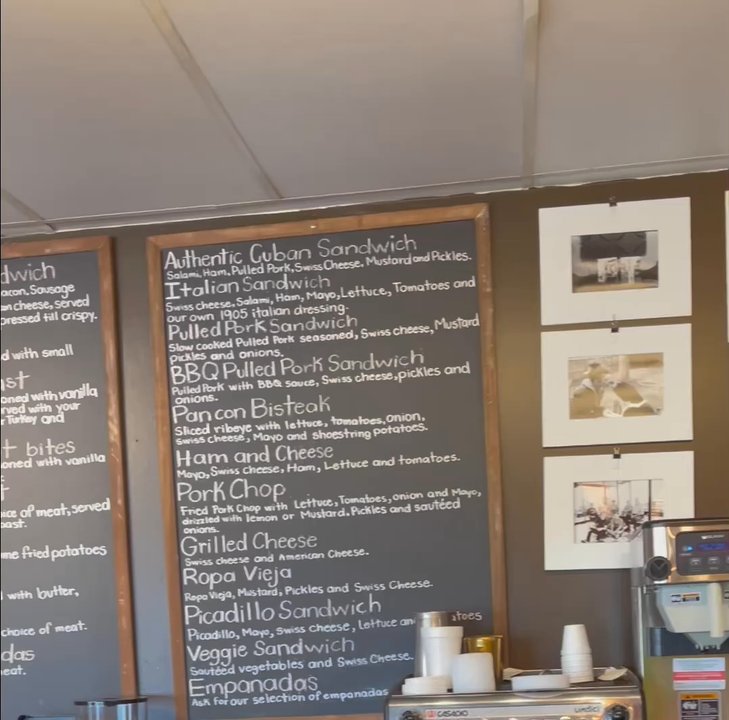 dwich
acon, Sausage
cheese, served
pressed till crispy.
d with small
st
oned with vanilla
rved with your
Turkey and
t bites
oned with vanilla
ice of meat, served
oast.
me fried potatoes
l with butter,
choice of meat.
das
eat.
Authentic Cuban Sandwich
Salami, Ham, Pulled Pork, Swiss Cheese, Mustard and Pickles.
Italian Sandwich
Swiss cheese, Salami, Ham, Mayo, Lettuce, Tomatoes and
our own 1905 italian dressing.
Pulled Pork Sandwich
Slow cooked Pulled Pork seasoned, Swiss cheese, Mustard
pickles and onions.
BBQ Pulled Pork Sandwich
Pulled Pork with BBQ sauce, Swiss cheese, pickles and
onions.
Pan con Bisteak
Sliced ribeye with lettuce, tomatoes, onion,
swiss cheese, Mayo and shoestring potatoes.
Ham and Cheese
Mayo, Swiss Cheese, Ham, Lettuce and tomatoes.
Pork Chop
Fried Pork Chop with Lettuce, Tomatoes, onion and Mayo,
drizzled with lemon or Mustard. Pickles and sautéed
onions.
Grilled Cheese
Swiss cheese and American Cheese.
Ropa Vieja
Ropa Vieja, Mustard, Pickles and Swiss Cheese.
Picadillo Sandwich
Picadillo, Mayo, Swiss cheese, Lettuce an atoes
Veggie Sandwich
Sautéed vegetables and Swiss Cheese.
Empanadas
Ask for our selection of empanadas
CASADIO
undici